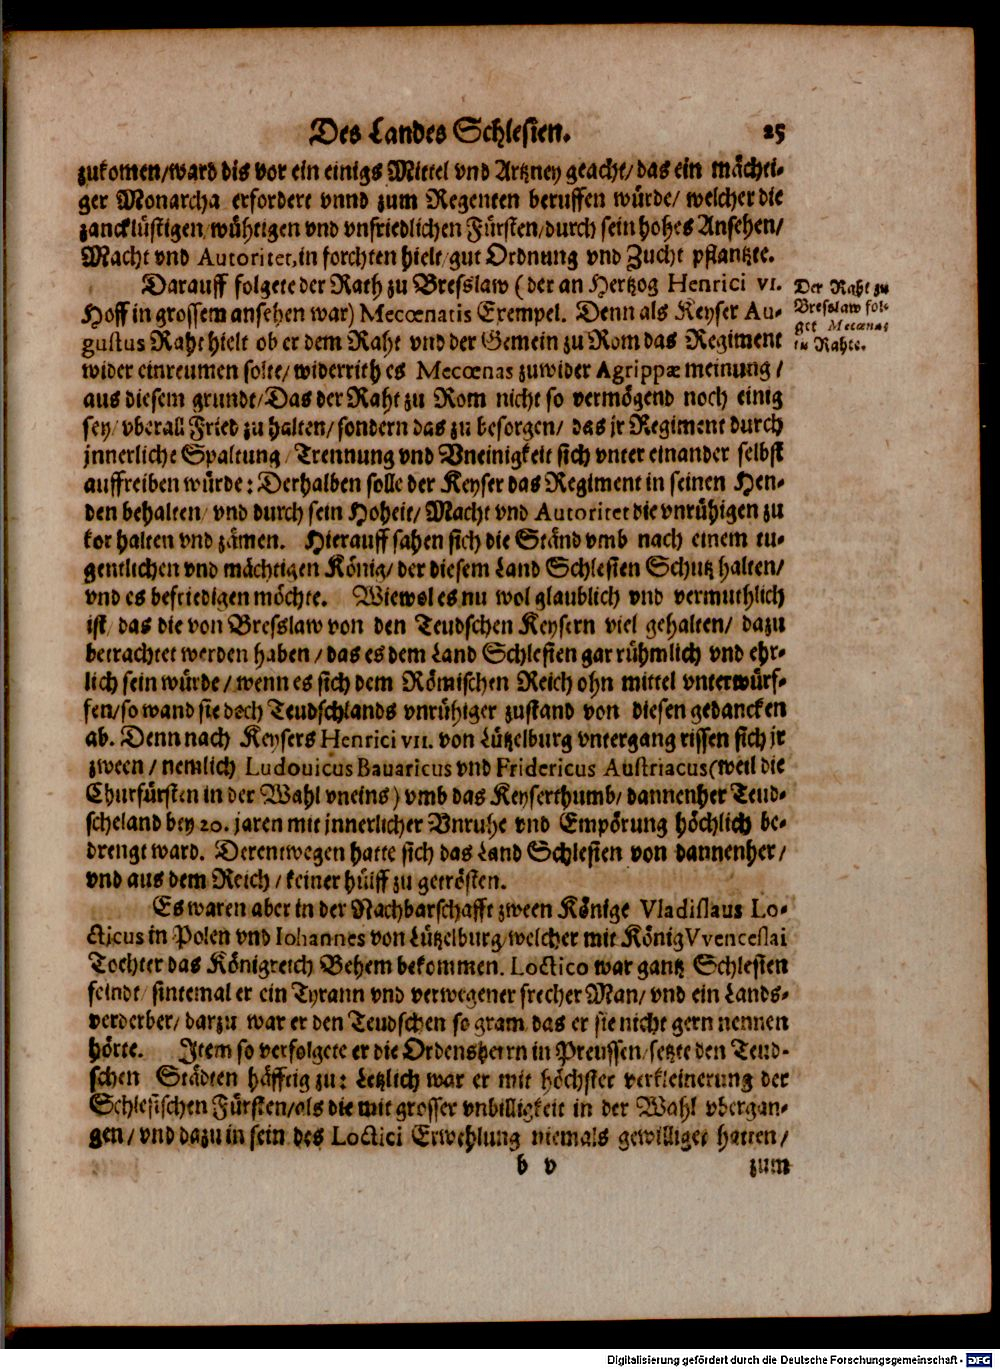 Des Landes Schlesien. 25
zukomen/ward dis vor ein einigs Mittel vnd Artzney geacht/das ein mächti-
ger Monarcha erfordert vnnd zum Regenten beruffen würde/ welcher die
zancklüstigen/wühtigen vnd vnfriedlichen Fürsten/durch sein hohes Ansehen/
Macht vnd Autoritet, in forchten hielt/gut Ordnung vnd Zucht pflantzte.
Darauff folgete der Rath zu Bresslaw (der an Hertzog Henrici VI.
Hoff in grossem ansehen war) Mecœnatis Exempel. Denn als Keyser Au-
gustus Raht hielt ob er dem Raht vnd der Gemein zu Rom das Regiment
wider einreumen solte/ widerrith es Mecœnas zuwider Agrippæ meinung/
aus diesem grundt/Das der Raht zu Rom nicht so vermögend noch einig
sey/vberall Fried zu halten/sondern das zu besorgen/ das jr Regiment durch
jnnerliche Spaltung/Trennung vnd Vneinigkeit sich vnter einander selbst
auffreiben würde: Derhalben solle der Keyser das Regiment in seinen Hen-
den behalten/ vnd durch sein Hoheit/Macht vnd Autoritet die vnrühigen zu
kor halten vnd zämen. Hierauff sahen sich die Ständ vmb nach einem tu-
gentlichen vnd mächtigen König/der diesem Land Schlesien Schutz halten/
vnd es befriedigen möchte. Wiewol es nu wol glaublich vnd vermuthlich
ist/ das die von Bresslaw von den Teudschen Keysern viel gehalten/ dazu
betrachtet werden haben/das es dem Land Schlesien gar rühmlich vnd ehr-
lich sein würde/wenn es sich dem Römischen Reich ohn mittel vnterwürf-
fen/so wand sie doch Teudschlands vnrühiger zustand von diesen gedancken
ab. Denn nach Keysers Henrici VII. von Lützelburg vntergang rissen sich jr
zween/nemlich Ludouicus Bauaricus vnd Fridericus Austriacus (weil die
Churfürsten in der Wahl vneins) vmb das Keyserthumb/dannenher Teud-
scheland bey 20. jaren mit jnnerlicher Vnruhe vnd Empörung höchlich be-
drengt ward. Derentwegen hatte sich das Land Schlesien von dannenher/
vnd aus dem Reich/keiner hülff zu getrösten.
Es waren aber in der Nachbarschafft zween Könige Vladislaus Lo-
cticus in Polen vnd Iohannes von Lützelburg/welcher mit König VVenceslai
Tochter das Königreich Behem bekommen. Loctico war gantz Schlesien
feindt/sintemal er ein Tyrann vnd verwegener frecher Man/vnd ein Lands-
verderber/darzu war er den Teudschen so gram das er sie nicht gern nennen
hörte. Item so verfolgete er die Ordensherrn in Preussen/setzte den Teud-
schen Städten häfftig zu: Letzlich war er mit höchster verkleinerung der
Schlesischen Fürsten/als die mit grosser vnbilligkeit in der Wahl vbergan-
gen/vnd dazu in sein des Loctici Erwehlung niemals gewilliget hatten/
b v zum
Der Raht zu
Bresslaw fol-
get Mecœnas
in Rahte.
Digitalisierung gefördert durch die Deutsche Forschungsgemeinschaft - DFG